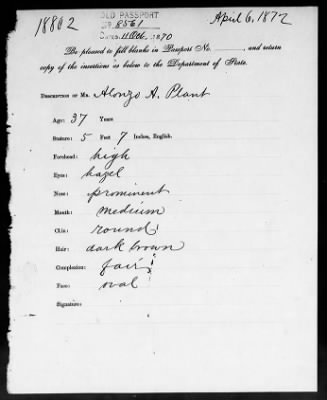 18802
OLD PASSPORT
8561
1870
April 6, 1872
Be pleased to fill blanks in Passport No. , and return
copy of the insertions as below to the Department of State.
Description of Mr. Alonzo A. Plant
Age: 37 Years
Stature: 5 Feet 7 Inches, English.
Forehead: high
Eyes: hazel
Nose: prominent
Mouth: medium
Chin: round
Hair: dark brown
Complexion: fair
Face: oval
Signature: